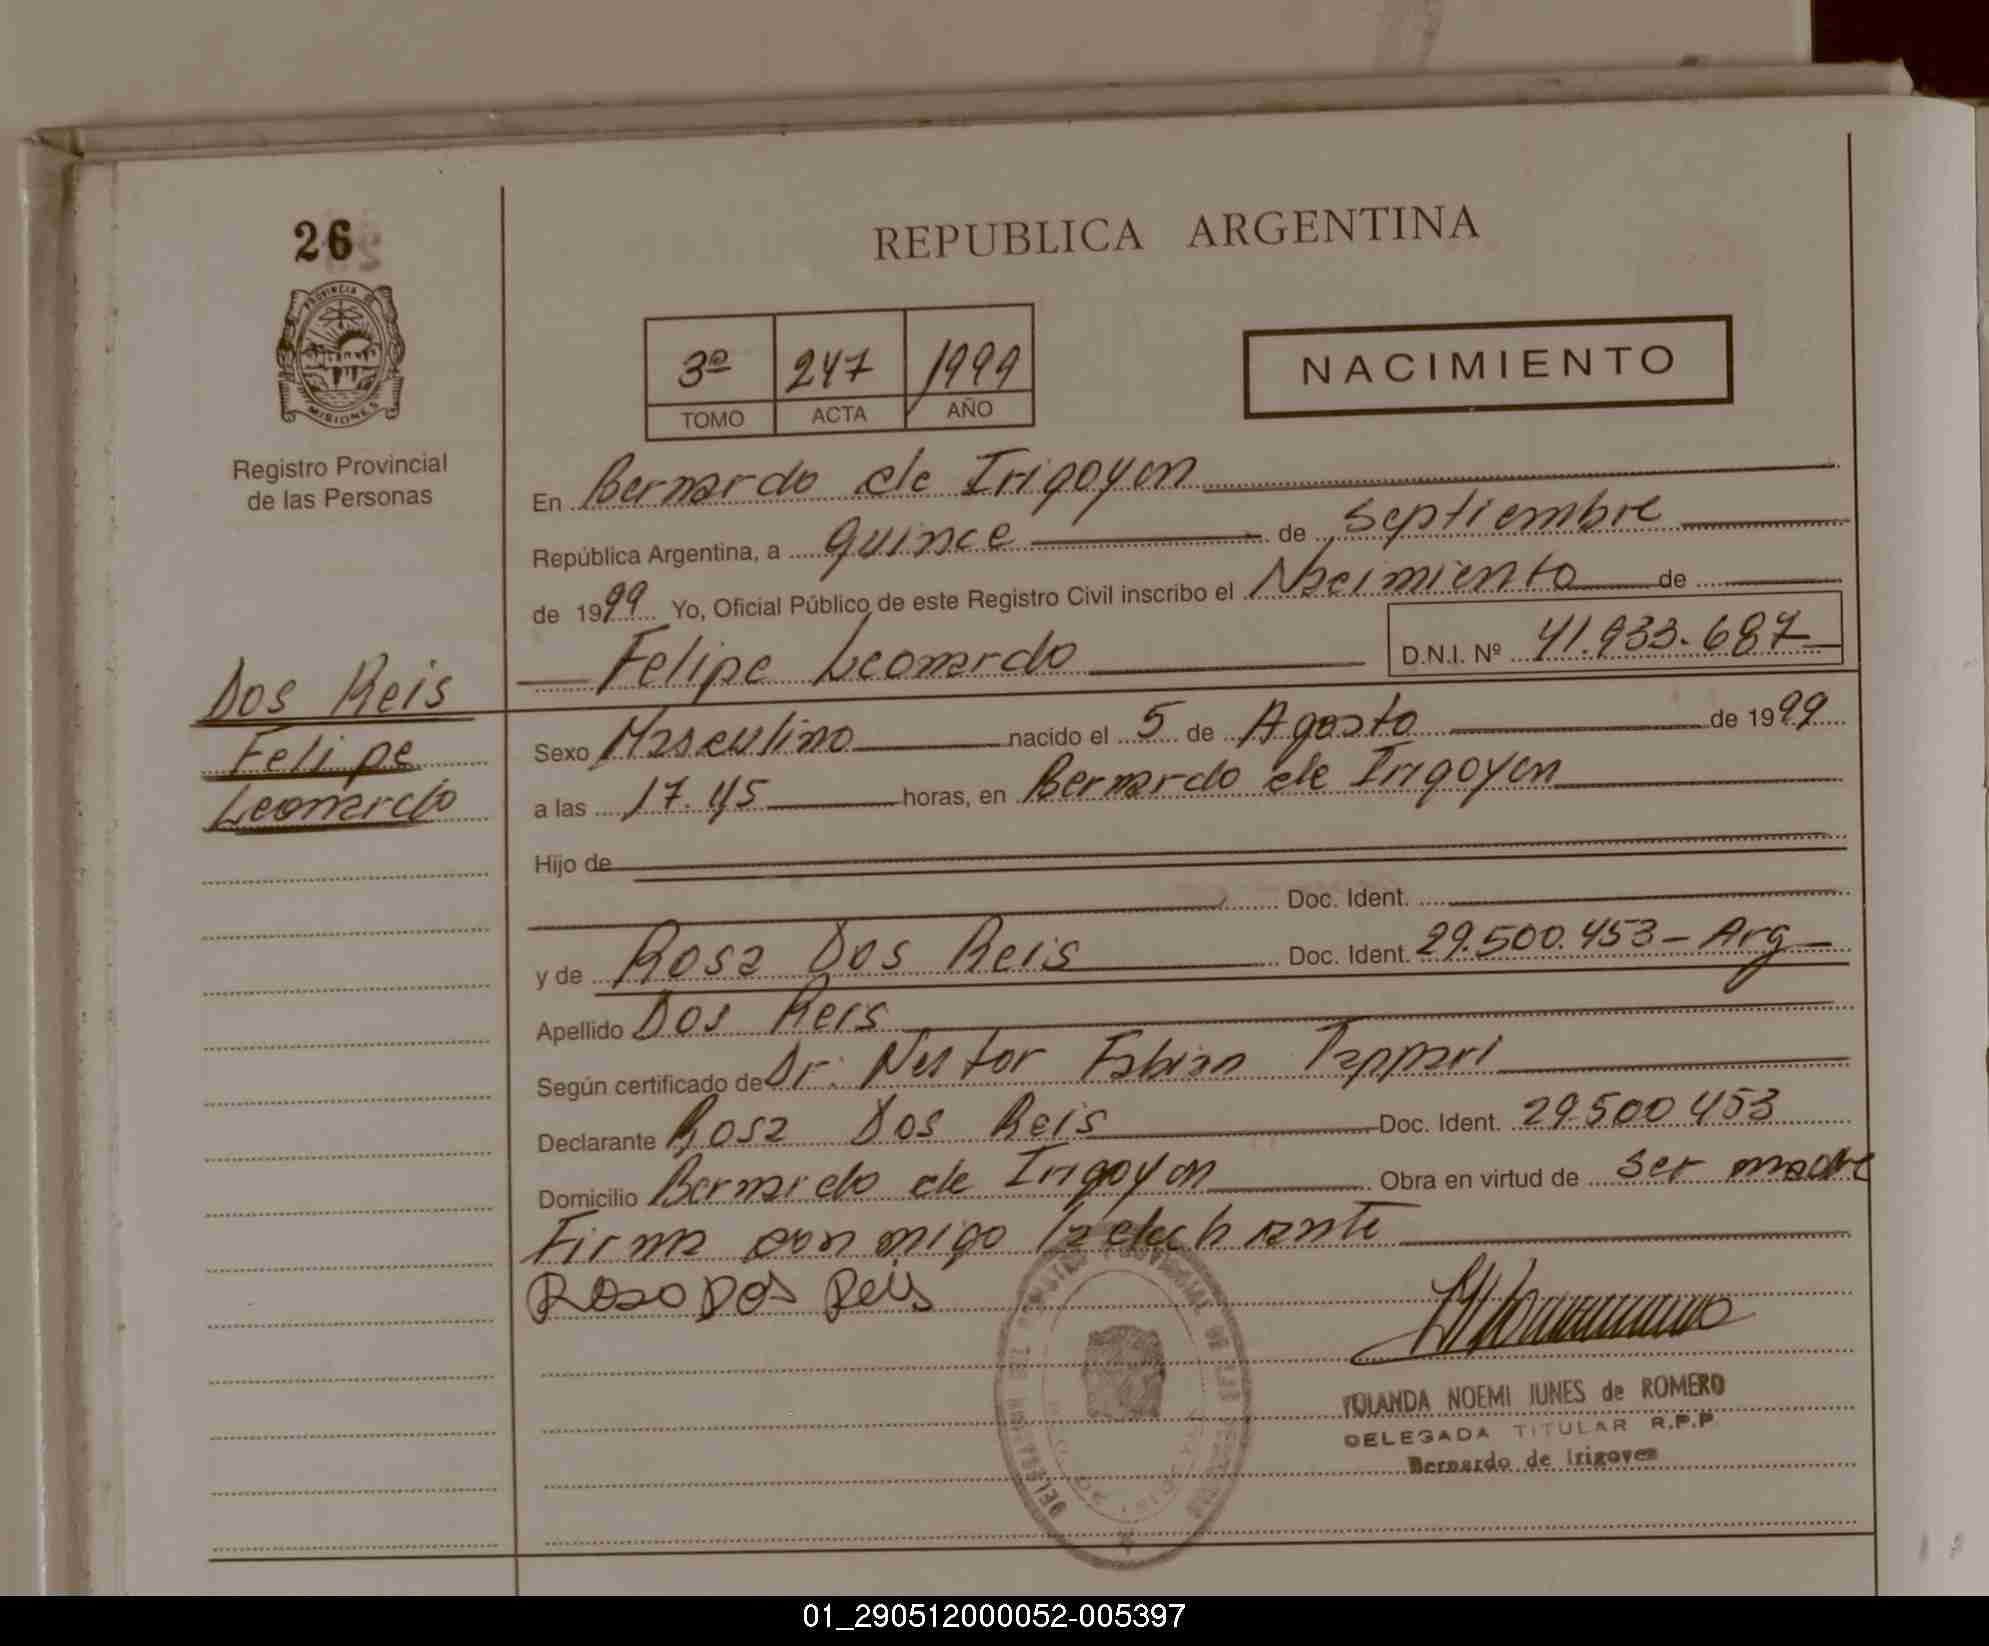 26
PROVINCIA DE
MISIONES
Registro Provincial
de las Personas
Dos Reis
Felipe
Leonardo
REPUBLICA ARGENTINA
3º 247 1999
TOMO ACTA AÑO
NACIMIENTO
En Bernardo de Irigoyen
República Argentina, a quince de septiembre
de 1999 Yo, Oficial Público de este Registro Civil inscribo el Nacimiento de
Felipe Leonardo D.N.I. Nº 41.933.687
Sexo Masculino nacido el 5 de Agosto de 1999
a las 17.45 horas, en Bernardo de Irigoyen
Hijo de
Doc. Ident.
y de Rosa Dos Reis Doc. Ident. 29.500.453 - Arg
Apellido Dos Reis
Según certificado de Dr. Nestor Fabian
Declarante Rosa Dos Reis Doc. Ident. 29.500 453
Domicilio Bernardo de Irigoyen Obra en virtud de ser madre
Firma conmigo la
Rosa Dos Reis
YOLANDA NOEMI JUNES de ROMERO
DELEGADA TITULAR R.P.P.
Bernardo de Irigoyen
01_290512000052-005397